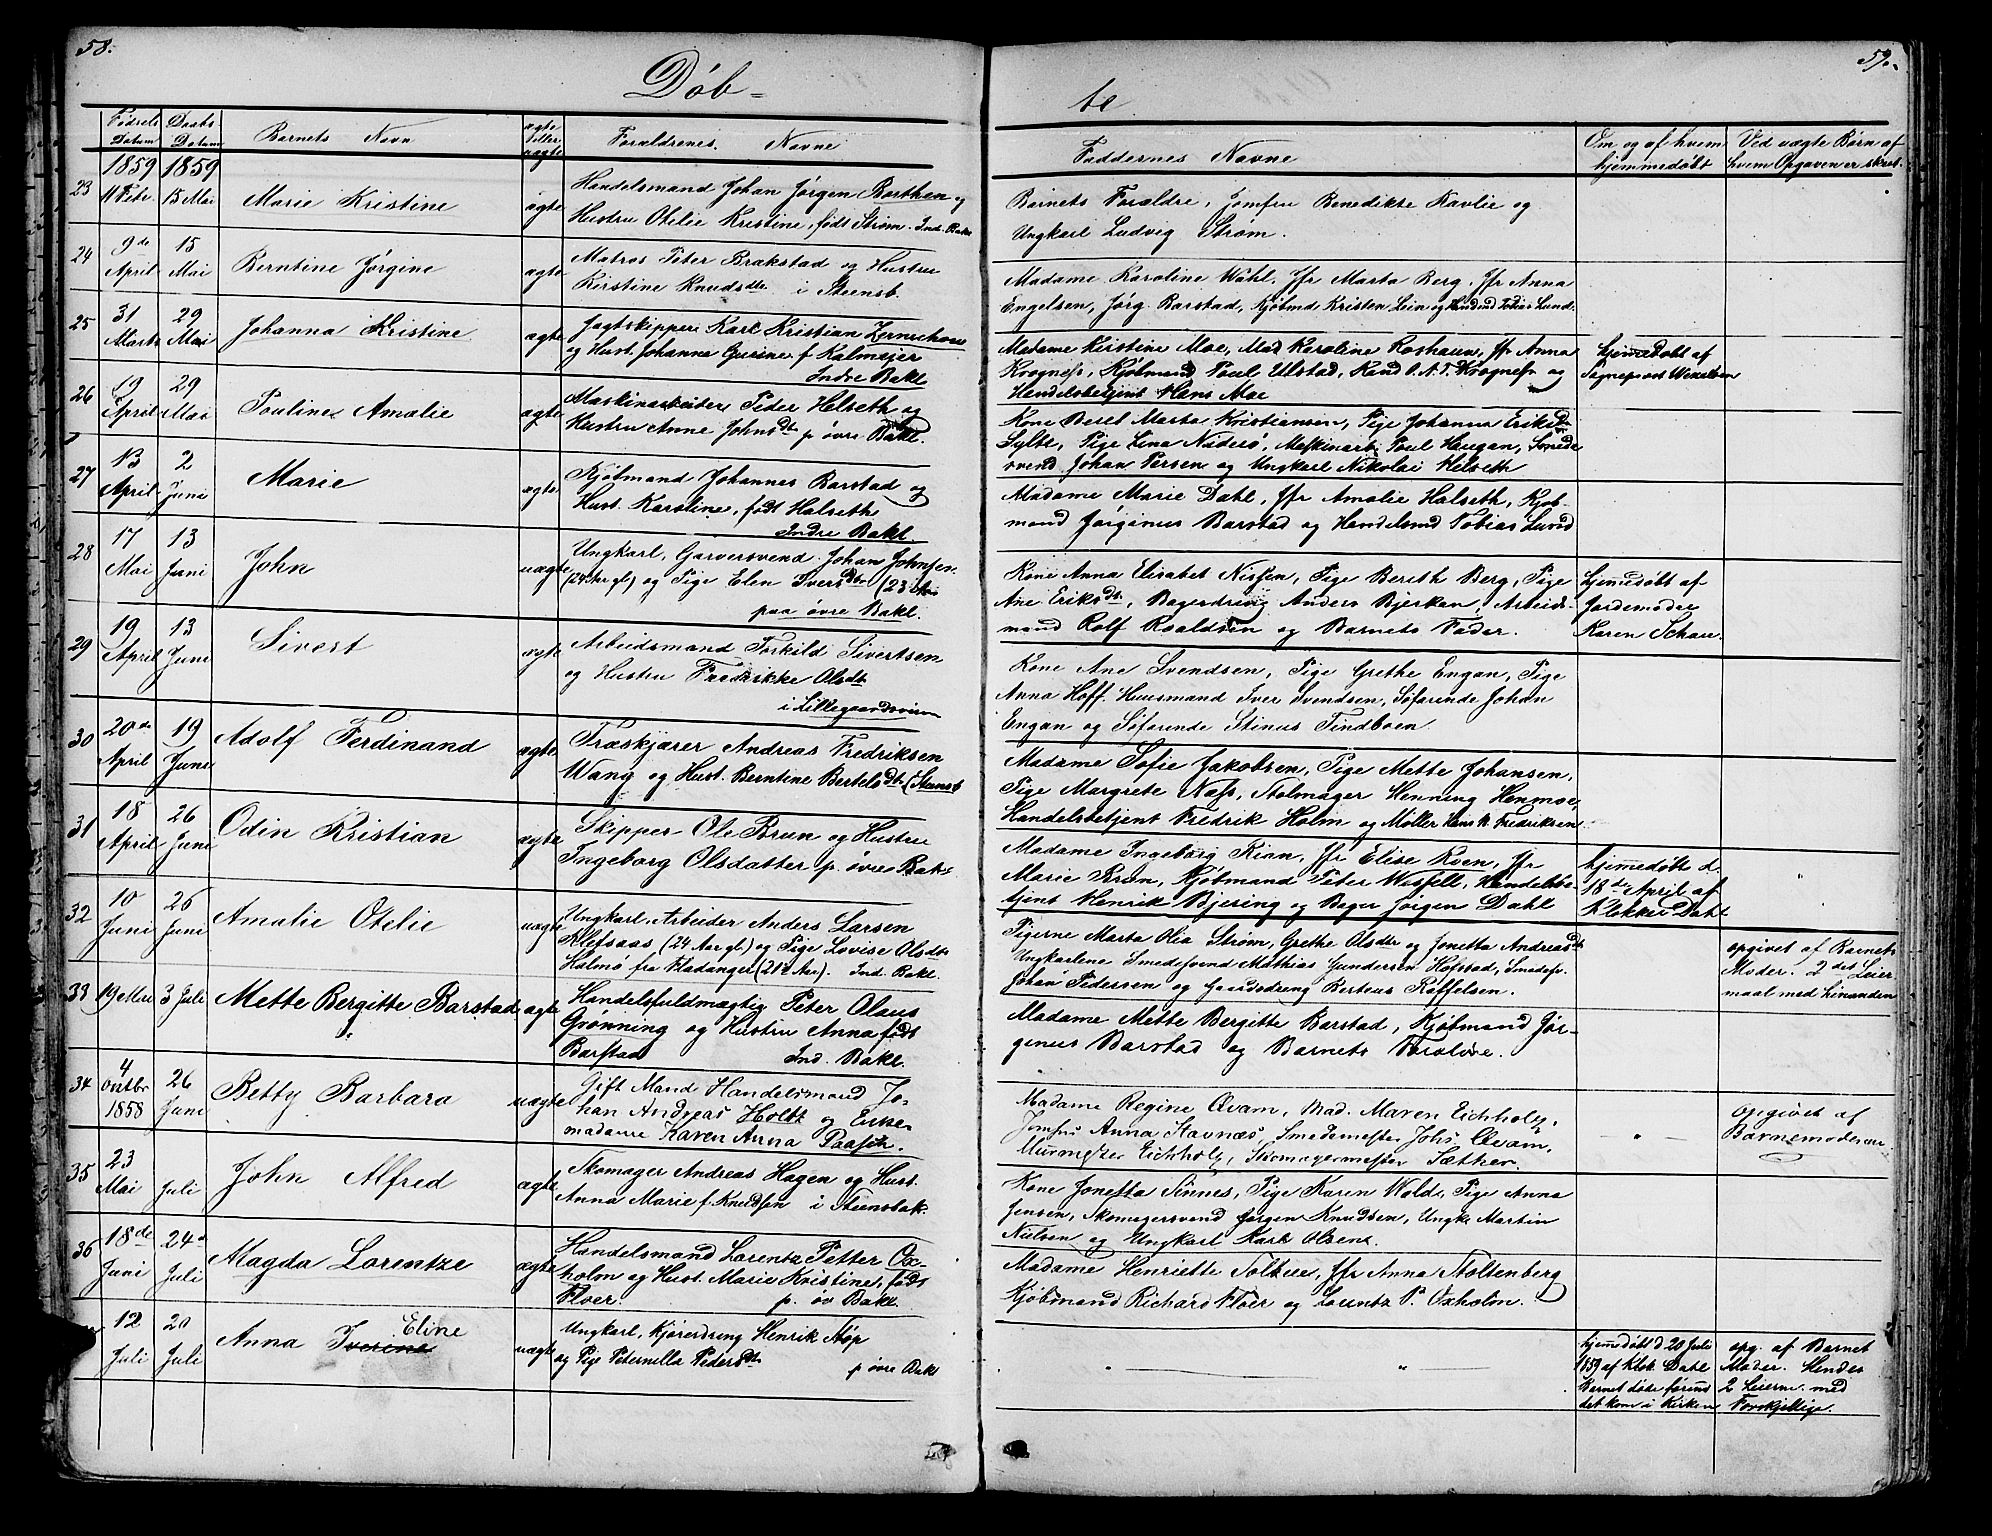 58.
Døb-
Fødsels Datum
Daabs- Datum
Barnets Navn
ægte eller uægte
Forældrenes Navne
1859 1859
23 11 Febr. 15 Mai Marie Kristine ægte Handelsmand Johan Jørgen Barthen og
Hustru Otelie Kristine, født Strøm. Ind. Bakl
24 9de April 15 Mai Berntine Jørgine ægte Matros Peter Brakstad og Hustru
Kirstine Knudsdtr. i Steensb.
25 31 Marts 29 Mai Johanna Kristine ægte Jagtskipper Karl Kristian
og Hust. Johanna Gurine f. Kalmajer
Indre Bakl
26 19 April 29 Mai Pouline Amalie ægte Maskinarbeider Peder Helseth og
Hustru Anne Johnsdt p. øvre Bakl.
27 13 April 2 Juni Marie ægte Kjøbmand Johannes Barstad og
Hust. Karoline, født Halseth
Indre Bakl.
28 17 Mai 13 Juni John uægte Ungkarl, Garversvend Johan Johnsen
(24 Aar gl) og Pige Elen Iversdtr (23 Aar
paa øvre Bakl.
29 19 April 13 Juni Sivert ægte Arbeidsmand Torkild Sivertsen
og Hustru Fredrikke Olsdtr
i Lillegaardsveien
30 20de April 19 Juni Adolf Ferdinand ægte Træskjærer Andreas Fredriksen
Wang og Hust. Berntine Bertelsdtr. (Steensb
31 18 April 26 Juni Odin Kristian ægte Skipper Ole Brun og Hustru
Ingeborg Olsdatter p. øvre Bakl
32 10 Juni 26 Juni Amalie Otelie uægte Ungkarl, Arbeider Anders Larsen
Klefsaas (24 Aar gl) og Pige Lovise Olsdtr
Halmø fra Fladanger (21½ Aar). Ind. Bakl.
33 19 Mai 3 Juli Mette Bergitte Barstad ægte Handelsfuldmægtig Peter Olaus
Grønning og Hustru Anna født
Barstad Ind. Bakl.
34 4 Octbr 1858 26 Juni Betty Barbara uægte Gift Mand Handelsmand Jo-
han Andreas Holtz og Enke-
madame Karen Anna Paasch.
35 23 Mai Juli John Alfred ægte Skomager Andreas Hagen og Hust.
Anna Marie f. Knudsen i Steensbak.
36 18de Juni 24de Juli Magda Lorentze ægte Handelsmand Lorentz Petter Ox-
holm og Hust. Marie Kristine, født
Floer. p. øv Bakl.
12 Juli 20 Juli Anna Iverine Eline uægte Ungkarl, Kjøredreng Henrik Asp
og Pige Peternilla Pedersdtr
p øvre Bakl
59.
te
Faddernes Navne
Om og af hvem hjemmedøbt
Ved uægte Børn af hvem Opgaven er skeet.
Barnets Forældre, Jomfru Benedikte Ravlie og
Ungkarl Ludvig Strøm.
Madame Karoline Wahl, Jfr Marta Berg, Jfr Anna
Engelsen, Jørg. Barstad, Kjøbmd Kristen Lein og Handmd Tobias Lund.
Madame Kirstine Moe, Mad Karoline Roshauw, Jfr Anna
Krogness, Kjøbmand Poul Ulstad, Kand O.A.T. Krogness og
Handelsbetjent Hans Moe
hjemedøbt af
Sognepræst Wexelsen
Kone Beret Marta Kristiansen, Pige Johanna Eriksdtr
Sylte, Pige Lina Naderø, Maskinarb. Poul Haugan, Smede
svend Johan Persen og Ungkarl Nikolai Helseth
Madame Marie Dahl, Jfr Amalie Halseth, Kjøb-
mand Jørginus Barstad og Handelsmd Tobias Lund
Kone Anna Elisabet Nissen, Pige Bereth Berg, Pige
Ane Eriksdtr, Bagerdreng Anders Bjerkan, Arbeids-
mand Rolf Roaldsen og Barnets Fader.
hjemedøbt af
Jordemoder
Karen Schau.
Kone Ane Svendsen, Pige Grethe Engan, Pige
Anna Hoff. Huusmand Iver Svendsen, Søfarende Johan
Engan og Søfarende Stinus Tindboen.
Madame Sofie Jakobsen, Pige Mette Johansen,
Pige Margrete Næss, Stolmager Henning Henmoe,
Handelsbetjent Fredrik Holm og Møller Hans N. Fredriksen.
Madame Ingeborg Rian, Jfr Elise Kven, Jfr
Marie Brun, Kjøbmand Peter Wisfell, Handelsbe-
tjent Henrik Bjering og Bager Jørgen Dahl
hjemmedøbt d.
18de April af
Klokker Dahl
Pigerne Marta Olia Strøm, Grethe Olsdtr og Jonetta Andreasdtr
Ungkarlene Smedesvend Mathias Gundersen Hofstad, Smedesv.
Johan Pedersen og Gaardsdreng Berteus Roffelsen.
opgivet af Barnets
Moder. 2det Leier
maal med hinanden
Madame Mette Bergitte Barstad, Kjøbmand Jør-
ginus Barstad og Barnets Forældre.
Madame Regine Qvam, Mad. Maren Eichholz,
Jomfru Anna Stavnæs, Smedemester Johs Qvam,
Murmester Eichholz, Skomagermester Sæther.
— " —
opgivet af
Barnemoderen
Kone Jonetta Sinnes, Pige Karen Wold, Pige Anna
Jensen, Skomagersvend Jørgen Knudsen, Ungk. Martin
Nielsen og Ungkarl Karl Olsen.
Madame Henriette Soltu, Jfr Anna Stoltenberg
Kjøbmand Richard Floer og Lorentz P. Oxholm.
" — " —
hjemedøbt d 20 Juli
1859 af Klok. Dahl
Barnet døde førend
det kom i Kirken
opg. af Barnet
Moder. Hendes
2 Leierm. med
Forskjellige.